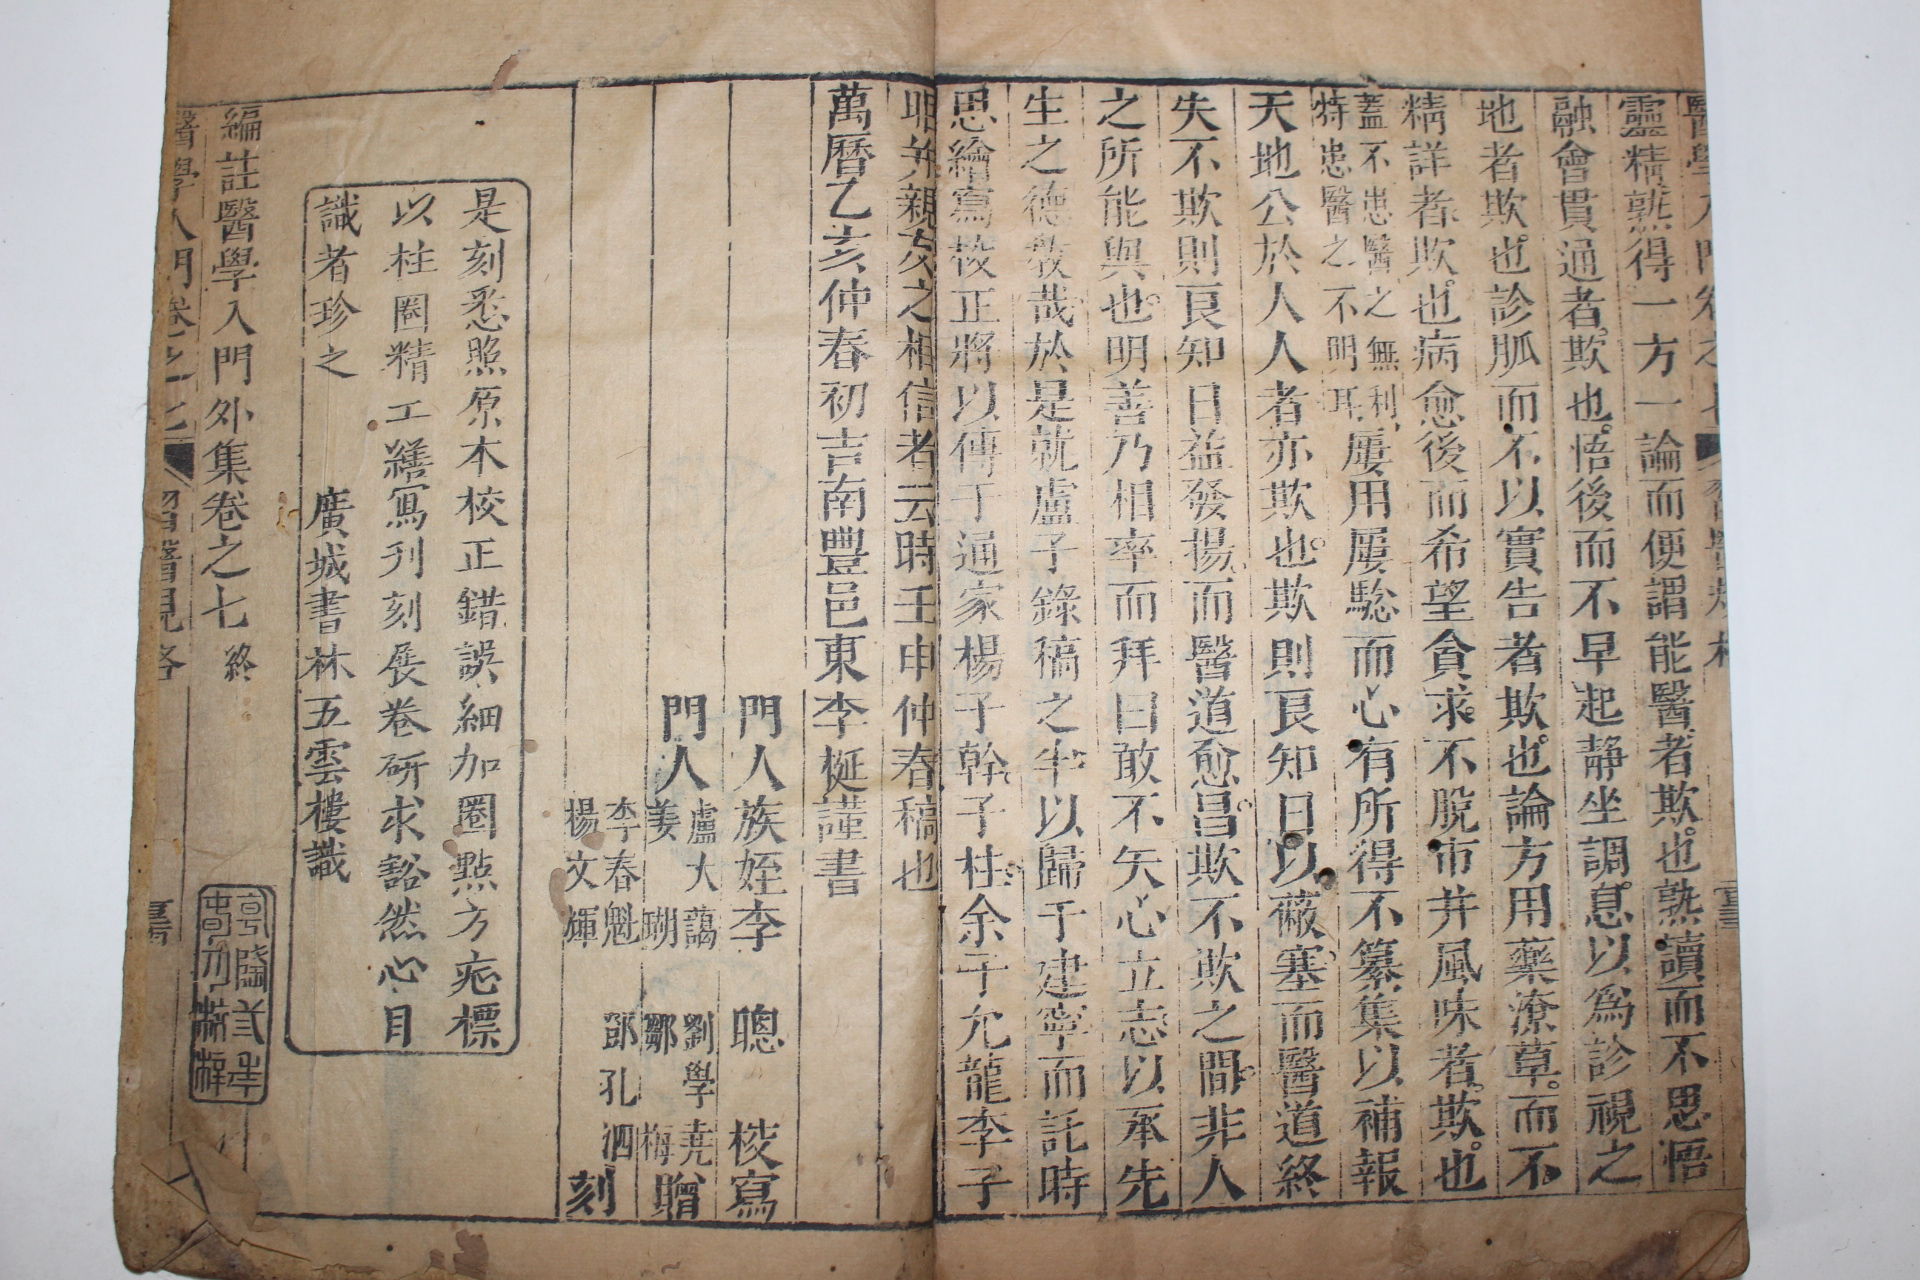 靈精熟得一方一論而便謂能醫者欺也熟讀而不思悟
融會貫通者欺也悟後而不早起靜坐調息以爲診視之
地者欺也診脈而不以實告者欺也論方用藥潦草而不
精詳者欺也病愈後而希望貪求不脫市井風味者欺也
蓋不患醫之無利
特患醫之不明耳
屢用屢驗而心有所得不纂集以補報
天地公於人人者亦欺也欺則良知日以蔽塞而醫道終
失不欺則良知日益發揚而醫道愈昌欺不欺之間非人
之所能與也明善乃相率而拜曰敢不矢心立志以承先
生之德教哉於是就盧子錄稿之半以歸于建寧而託時
思繪寫校正將以傳于通家楊子幹子柱余子允龍李子
昭并親友之相信者云時壬申仲春稿也
萬曆乙亥仲春初吉南豐邑東李梃謹書
門人族姪李聰校寫
門人
盧大藹 劉學堯
姜瑚 鄒梅
贈
李春魁 鄧孔泗
楊文輝
刻
是刻悉照原本校正錯誤細加圈點方症標
以柱圈精工繕寫刊刻展卷研求豁然心目
識者珍之 廣城書林五雲樓識
編註醫學入門外集卷之七終
醫學入門卷之七 習醫規格